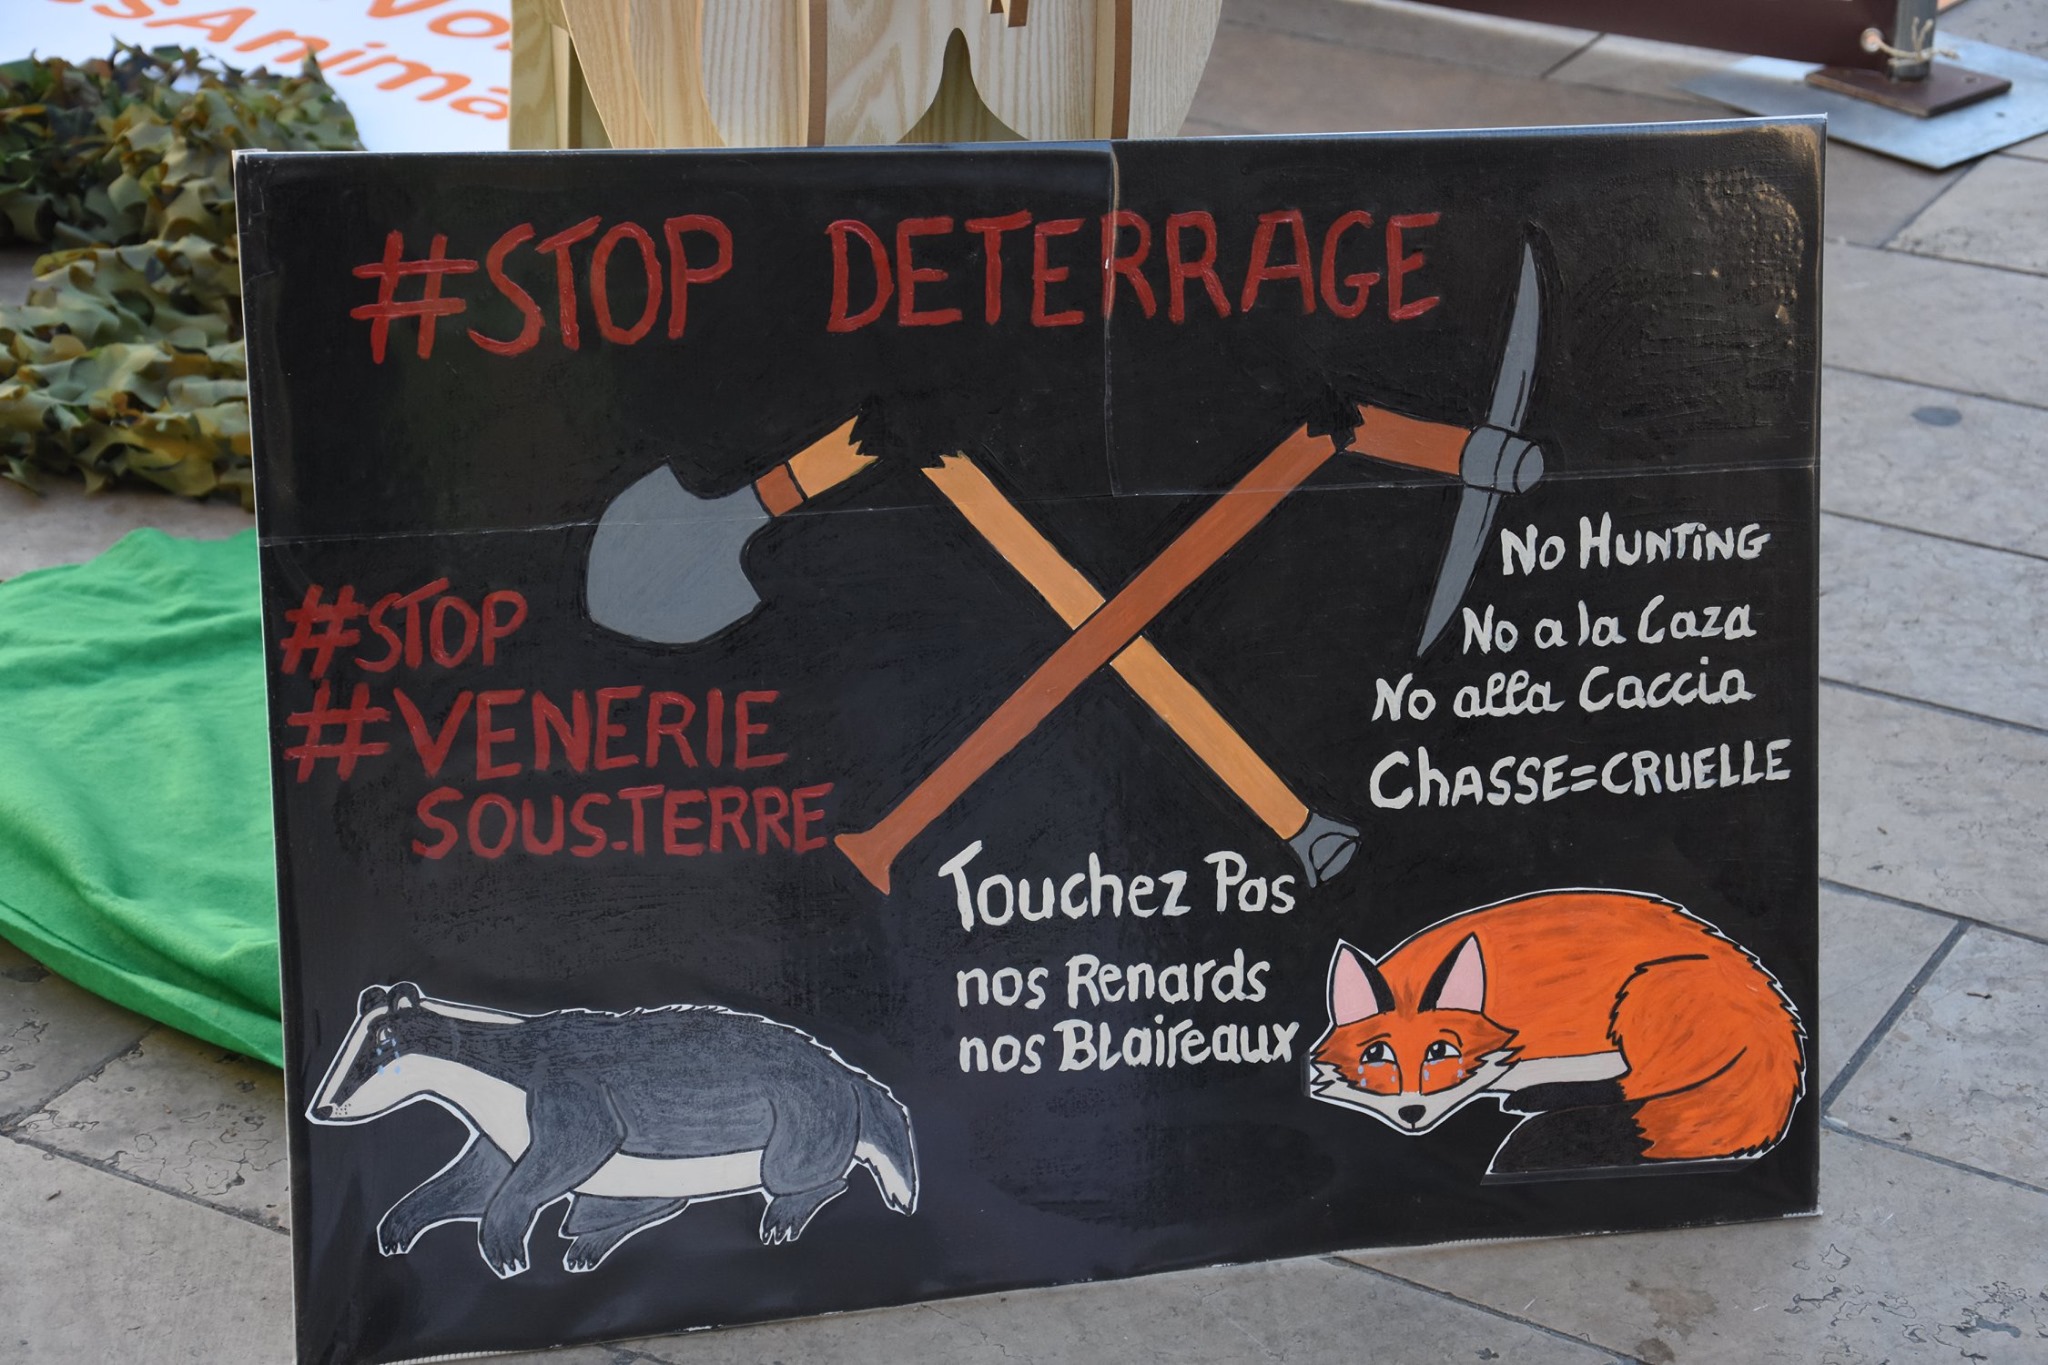 ssAnima
#STOP DETERRAGE
#STOP
#VENERIE
SOUS-TERRE
No HUNTING
No a la Caza
No alla Caccia
ChASSE=CRUELLE
Touchez Pas
nos Renards
nos BLaireaux